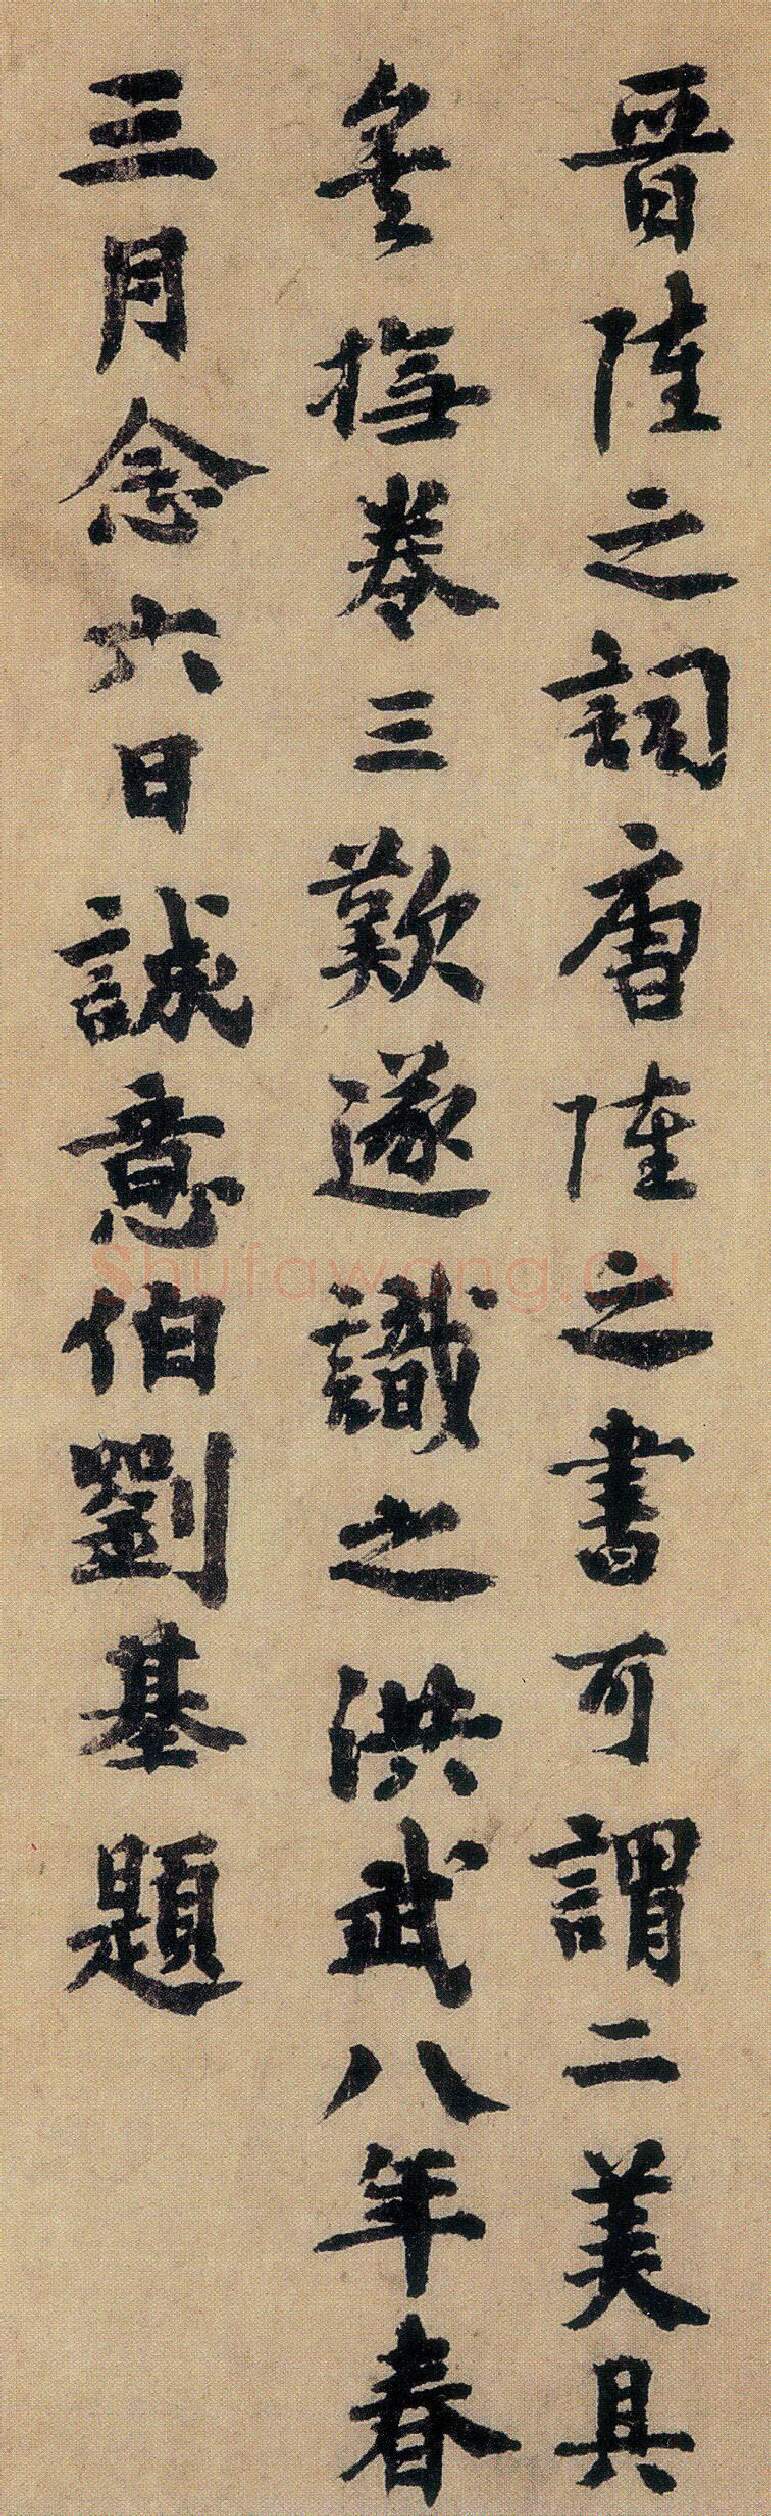 晋陸之詞唐陸之書可謂二美具
矣撫卷三歎遂識之洪武八年春
三月念六日誠意伯劉基題
Shufawang.CN